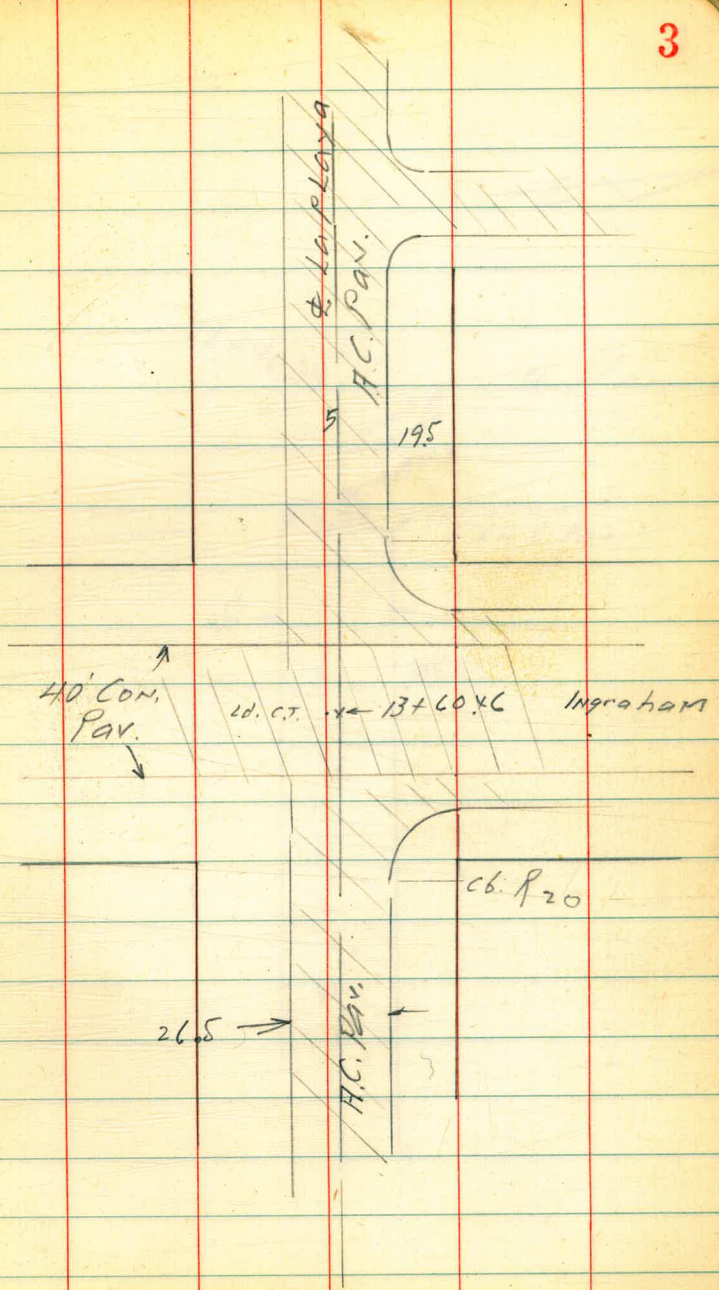 3
℄ La Playa
A.C. Pav.
5
19.5
40' Con.
Pav.
Ld. C.T. ← 13+60.46
Ingraham
cb. R 20
26.5
A.C. Pav.